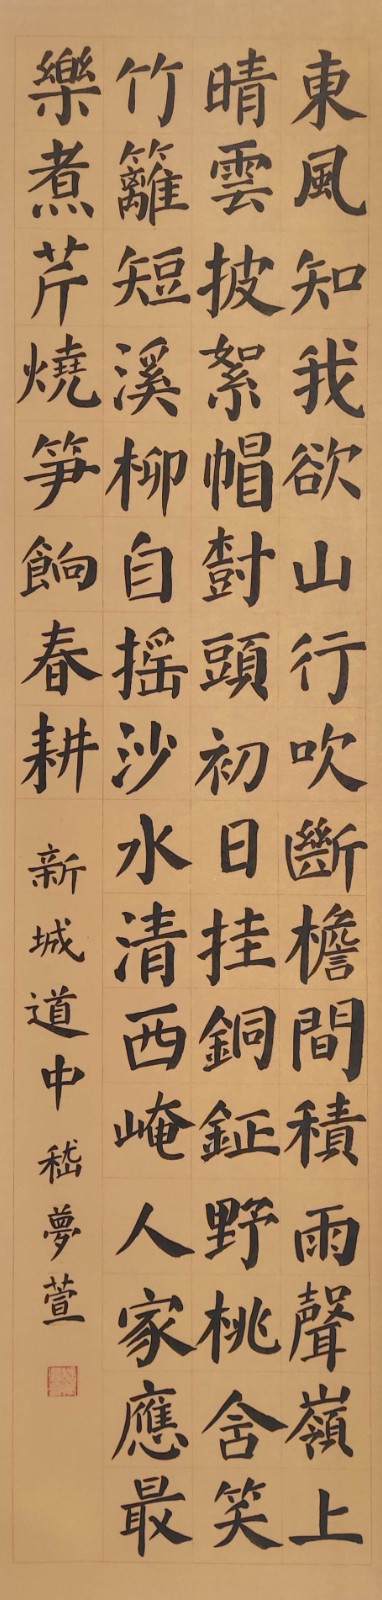 東風知我欲山行吹斷檐間積雨聲嶺上
晴雲披絮帽樹頭初日挂銅鉦野桃含笑
竹籬短溪柳自摇沙水清西崦人家應最
樂煮芹燒笋餉春耕
新城道中 嵇夢萱